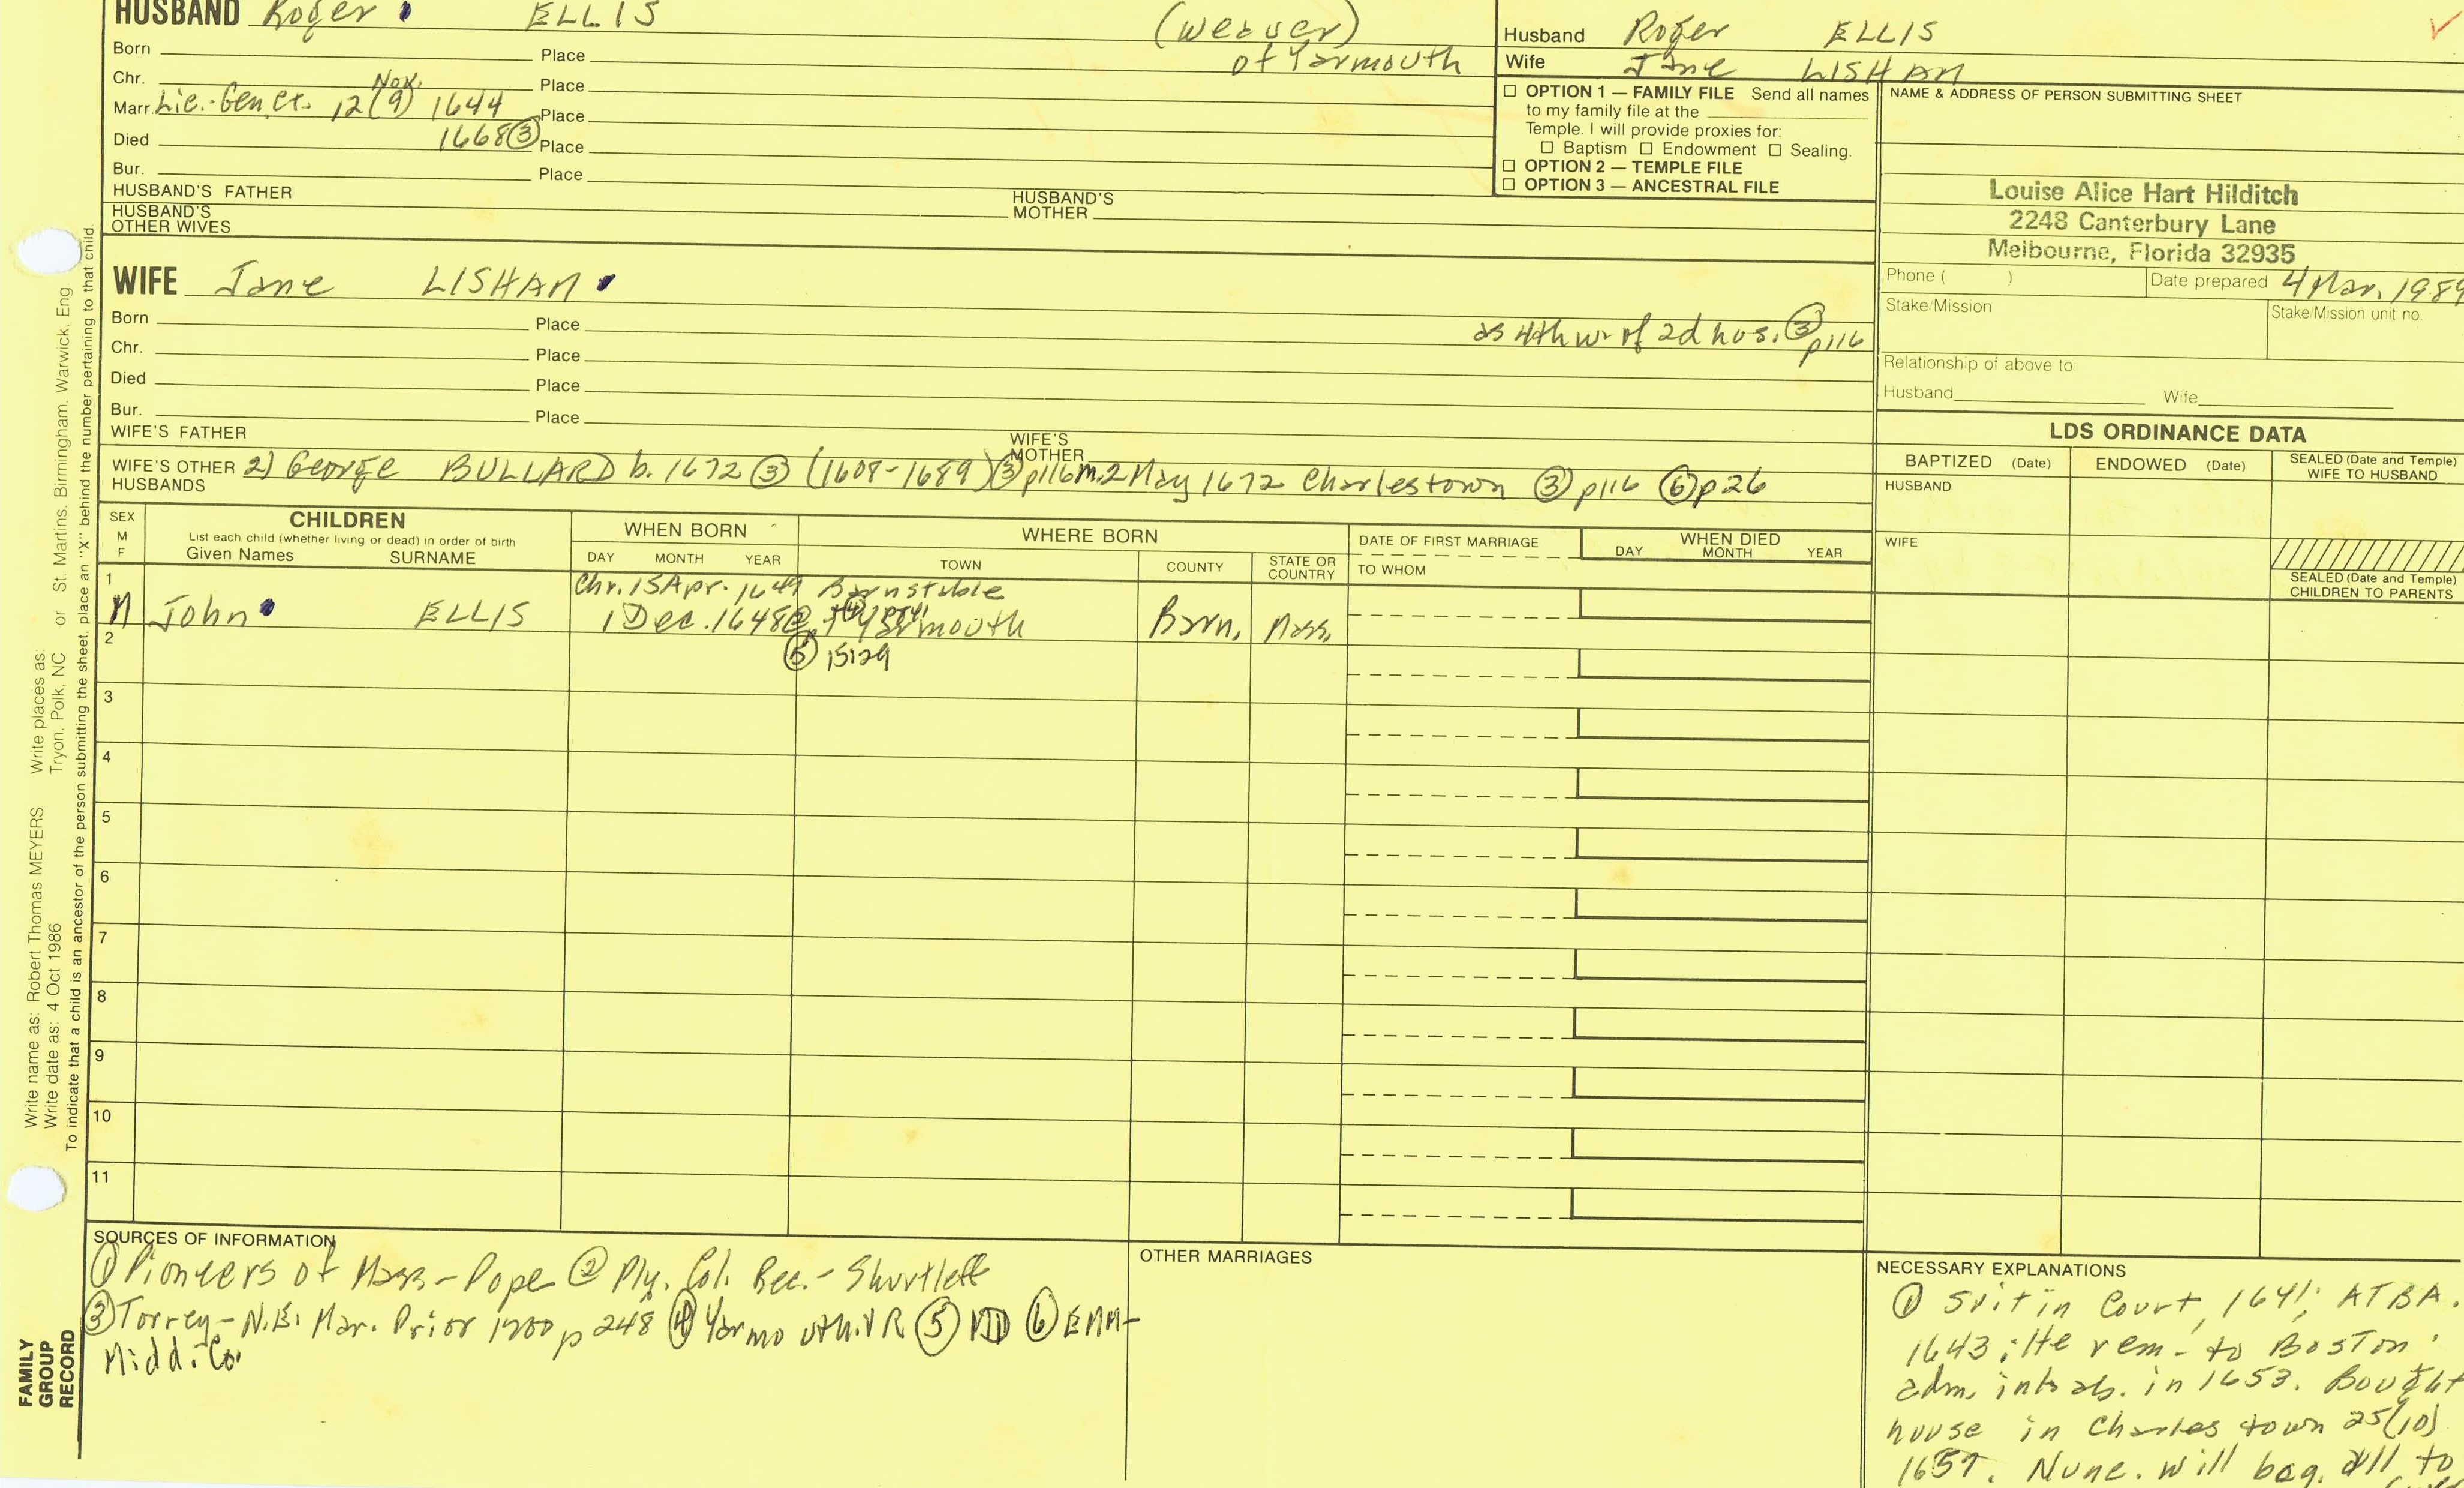 HUSBAND Roger ELLIS (weaver)
of Yarmouth
Born Place
Chr. Place
Marr. Lic. Gen Ct. 12(9) Nov. 1644 Place
Died 1668 ③ Place
Bur. Place
HUSBAND'S FATHER HUSBAND'S MOTHER
HUSBAND'S OTHER WIVES
Husband Roger ELLIS
Wife Jane LISHAN
☐ OPTION 1 — FAMILY FILE Send all names
to my family file at the
Temple. I will provide proxies for:
☐ Baptism ☐ Endowment ☐ Sealing.
☐ OPTION 2 — TEMPLE FILE
☐ OPTION 3 — ANCESTRAL FILE
NAME & ADDRESS OF PERSON SUBMITTING SHEET
Louise Alice Hart Hilditch
2248 Canterbury Lane
Melbourne, Florida 32935
Phone ( ) Date prepared 4 Mar. 1989
Stake/Mission Stake/Mission unit no.
Relationship of above to
Husband Wife
WIFE Jane LISHAN
Born Place
as 4th w. of 2d hus. ③ p116
Chr. Place
Died Place
Bur. Place
WIFE'S FATHER WIFE'S MOTHER
WIFE'S OTHER HUSBANDS 2) George BULLARD b. 1672 ③ (1608-1689) ③ p116 m. 2 May 1672 Charlestown ③ p116 ⑥ p26
LDS ORDINANCE DATA
BAPTIZED (Date) ENDOWED (Date) SEALED (Date and Temple) WIFE TO HUSBAND
HUSBAND
WIFE
SEALED (Date and Temple) CHILDREN TO PARENTS
SEX M F
CHILDREN
List each child (whether living or dead) in order of birth
Given Names SURNAME
WHEN BORN
DAY MONTH YEAR
WHERE BORN
TOWN COUNTY STATE OR COUNTRY
DATE OF FIRST MARRIAGE
TO WHOM
WHEN DIED
DAY MONTH YEAR
1 Chr. 15 Apr. 1649 Barnstable
M John ELLIS 1 Dec. 1648 Yarmouth Barn. Mass.
2 ⑤ 15:29
3
4
5
6
7
8
9
10
11
SOURCES OF INFORMATION
① Pioneers of Mass - Pope ② Ply. Col. Rec. - Shurtleff
③ Torrey - N.E. Mar. Prior 1700 p 248 ④ Yarmouth VR ⑤ MD ⑥ EMM-
Midd. Co.
OTHER MARRIAGES
NECESSARY EXPLANATIONS
① Suit in Court, 1641; ATBA.
1643; He rem. to Boston
adm. inhab. in 1653. Bought
house in Charlestown 25(10)
1657. Nunc. will beq. all to
Write name as: Robert Thomas MEYERS Write places as: St. Martins, Birmingham, Warwick, Eng
Write date as: 4 Oct 1986 Tryon, Polk, NC or
To indicate that a child is an ancestor of the person submitting the sheet, place an "X" behind the number pertaining to that child
FAMILY
GROUP
RECORD